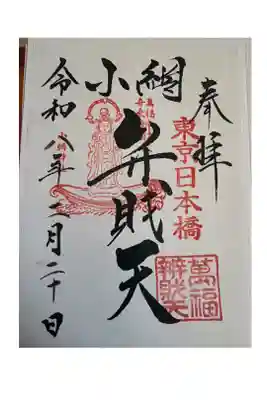 奉拝
東京日本橋
萬福
辨財天
小網
弁財天
令和八年二月二十日